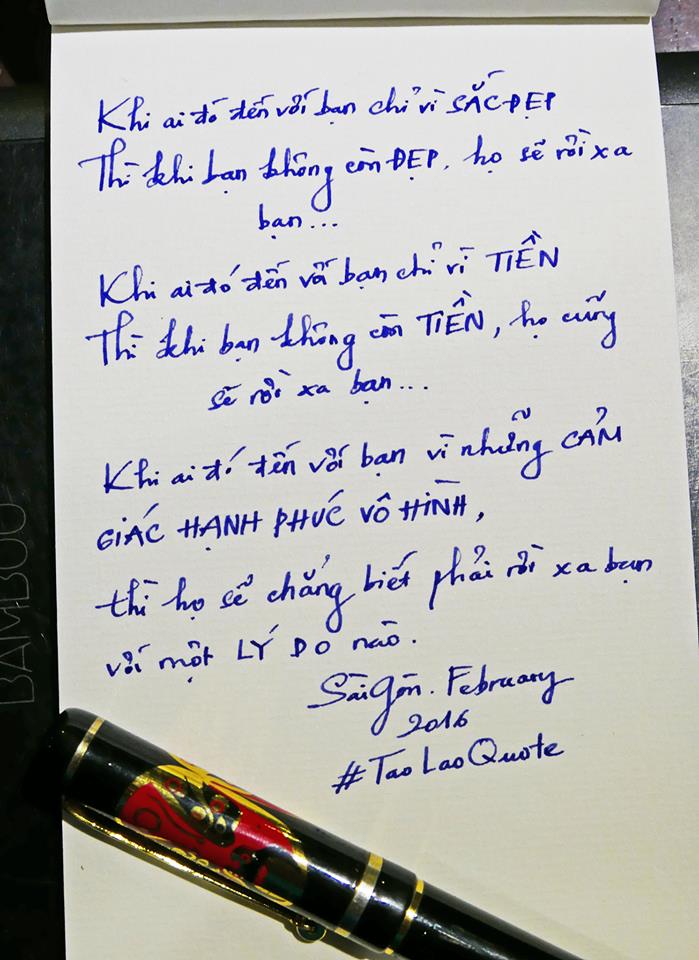 Khi ai đó đến với bạn chỉ vì SẮC ĐẸP
Thì khi bạn không còn ĐẸP, họ sẽ rời xa
bạn...
Khi ai đó đến với bạn chỉ vì TIỀN
Thì khi bạn không còn TIỀN, họ cũng
sẽ rời xa bạn...
Khi ai đó đến với bạn vì những CẢM
GIÁC HẠNH PHÚC VÔ HÌNH,
thì họ sẽ chẳng biết phải rời xa bạn
với một LÝ DO nào.
Sàigòn. February
2016
#TaoLaoQuote
BAMBOO